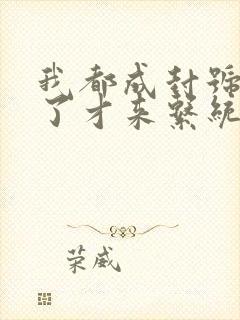 我都成封號
了才来繫統
荣威